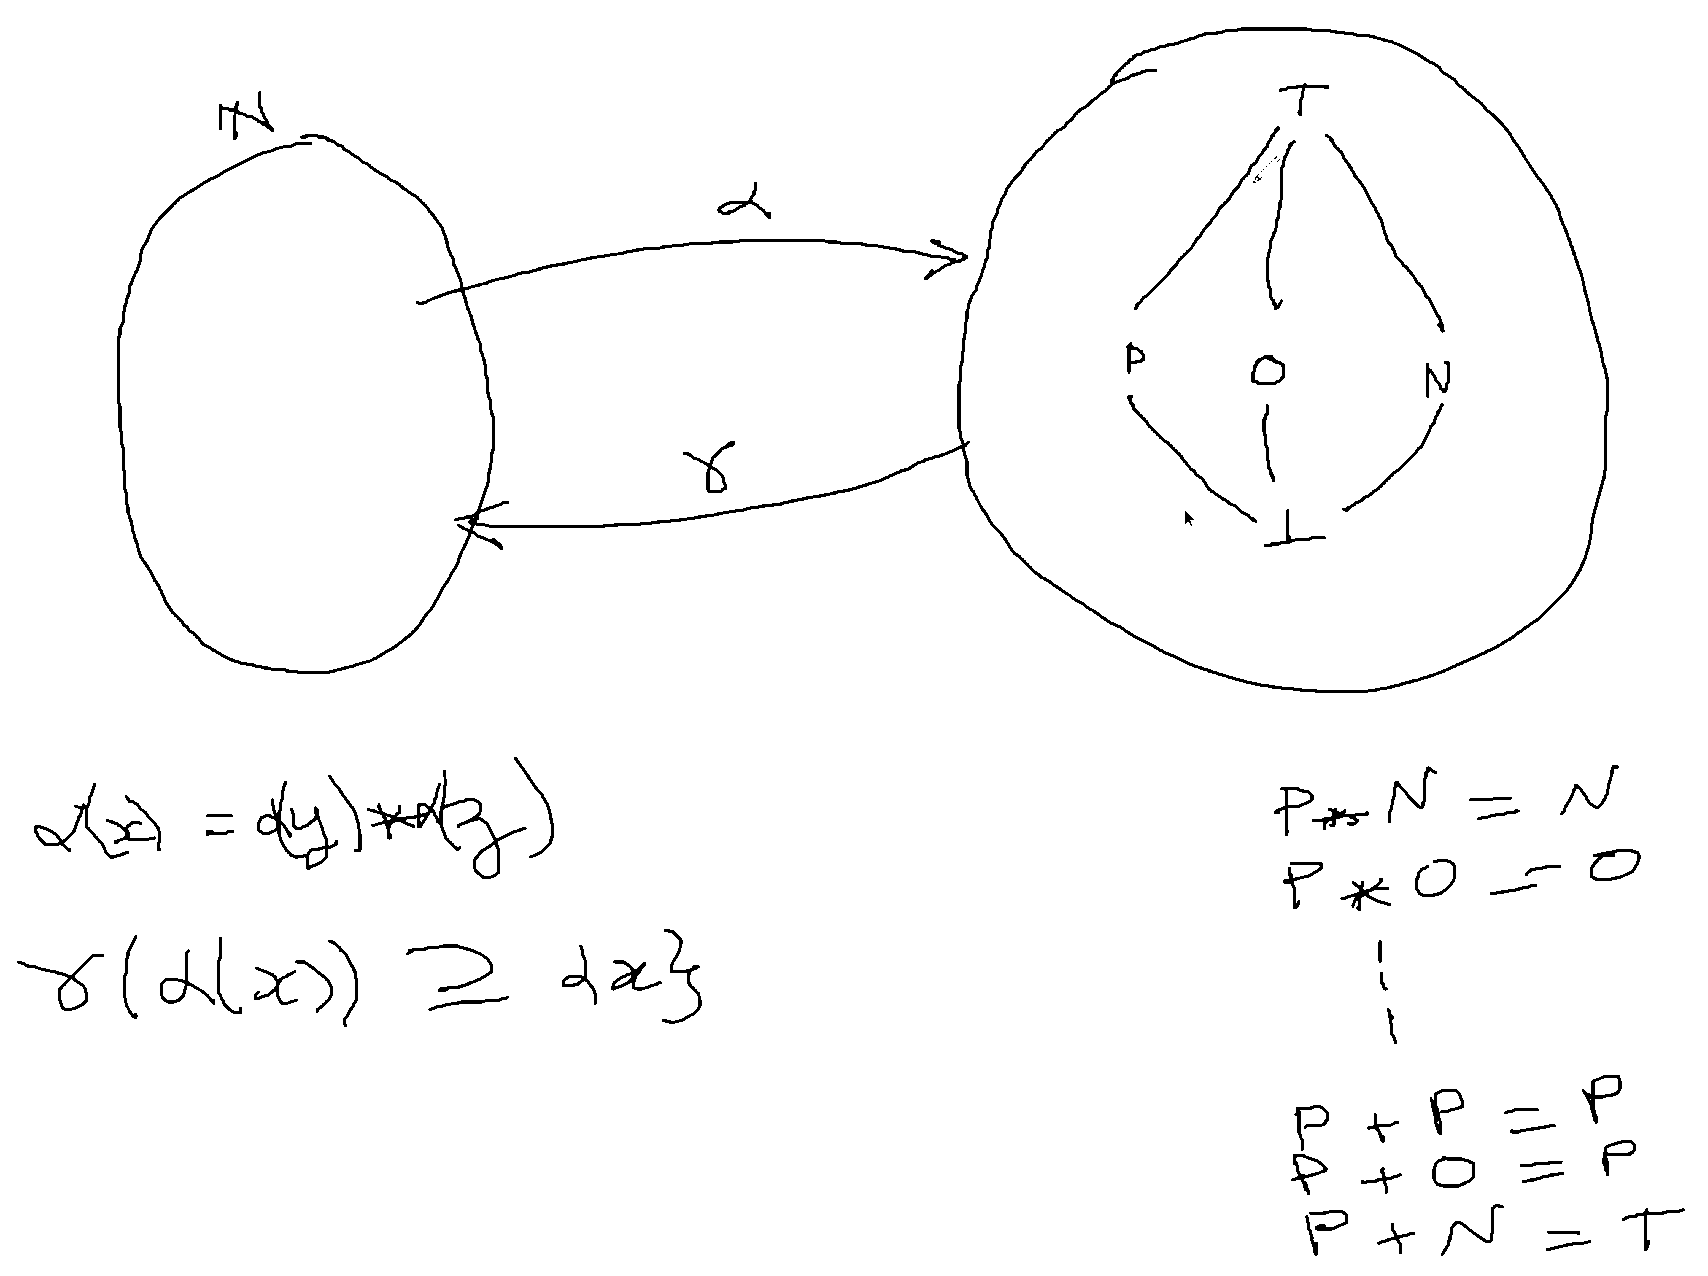 ℕ
α
γ
⊤
P O N
⊥
α(x) = α(y) * α(z)
γ(α(x)) ⊇ {x}
P * N = N
P * O = O
P + P = P
P + O = P
P + N = ⊤